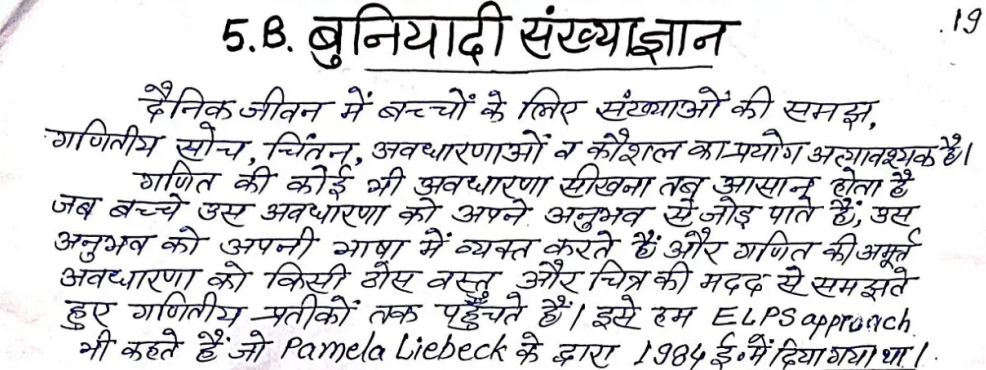 5.B. बुनियादी संख्याज्ञान
.19
दैनिक जीवन में बच्चों के लिए संख्याओं की समझ,
गणितीय सोच, चिंतन, अवधारणाओं व कौशल का प्रयोग अत्यावश्यक है।
गणित की कोई भी अवधारणा सीखना तब आसान होता है
जब बच्चे उस अवधारणा को अपने अनुभव से जोड़ पाते हैं, उस
अनुभव को अपनी भाषा में व्यक्त करते हैं और गणित की अमूर्त्त
अवधारणा को किसी ठोस वस्तु और चित्र की मदद से समझते
हुए गणितीय प्रतीकों तक पहुँचते हैं। इसे हम ELPS approach
भी कहते हैं जो Pamela Liebeck के द्वारा 1984 ई॰ में दिया गया था।